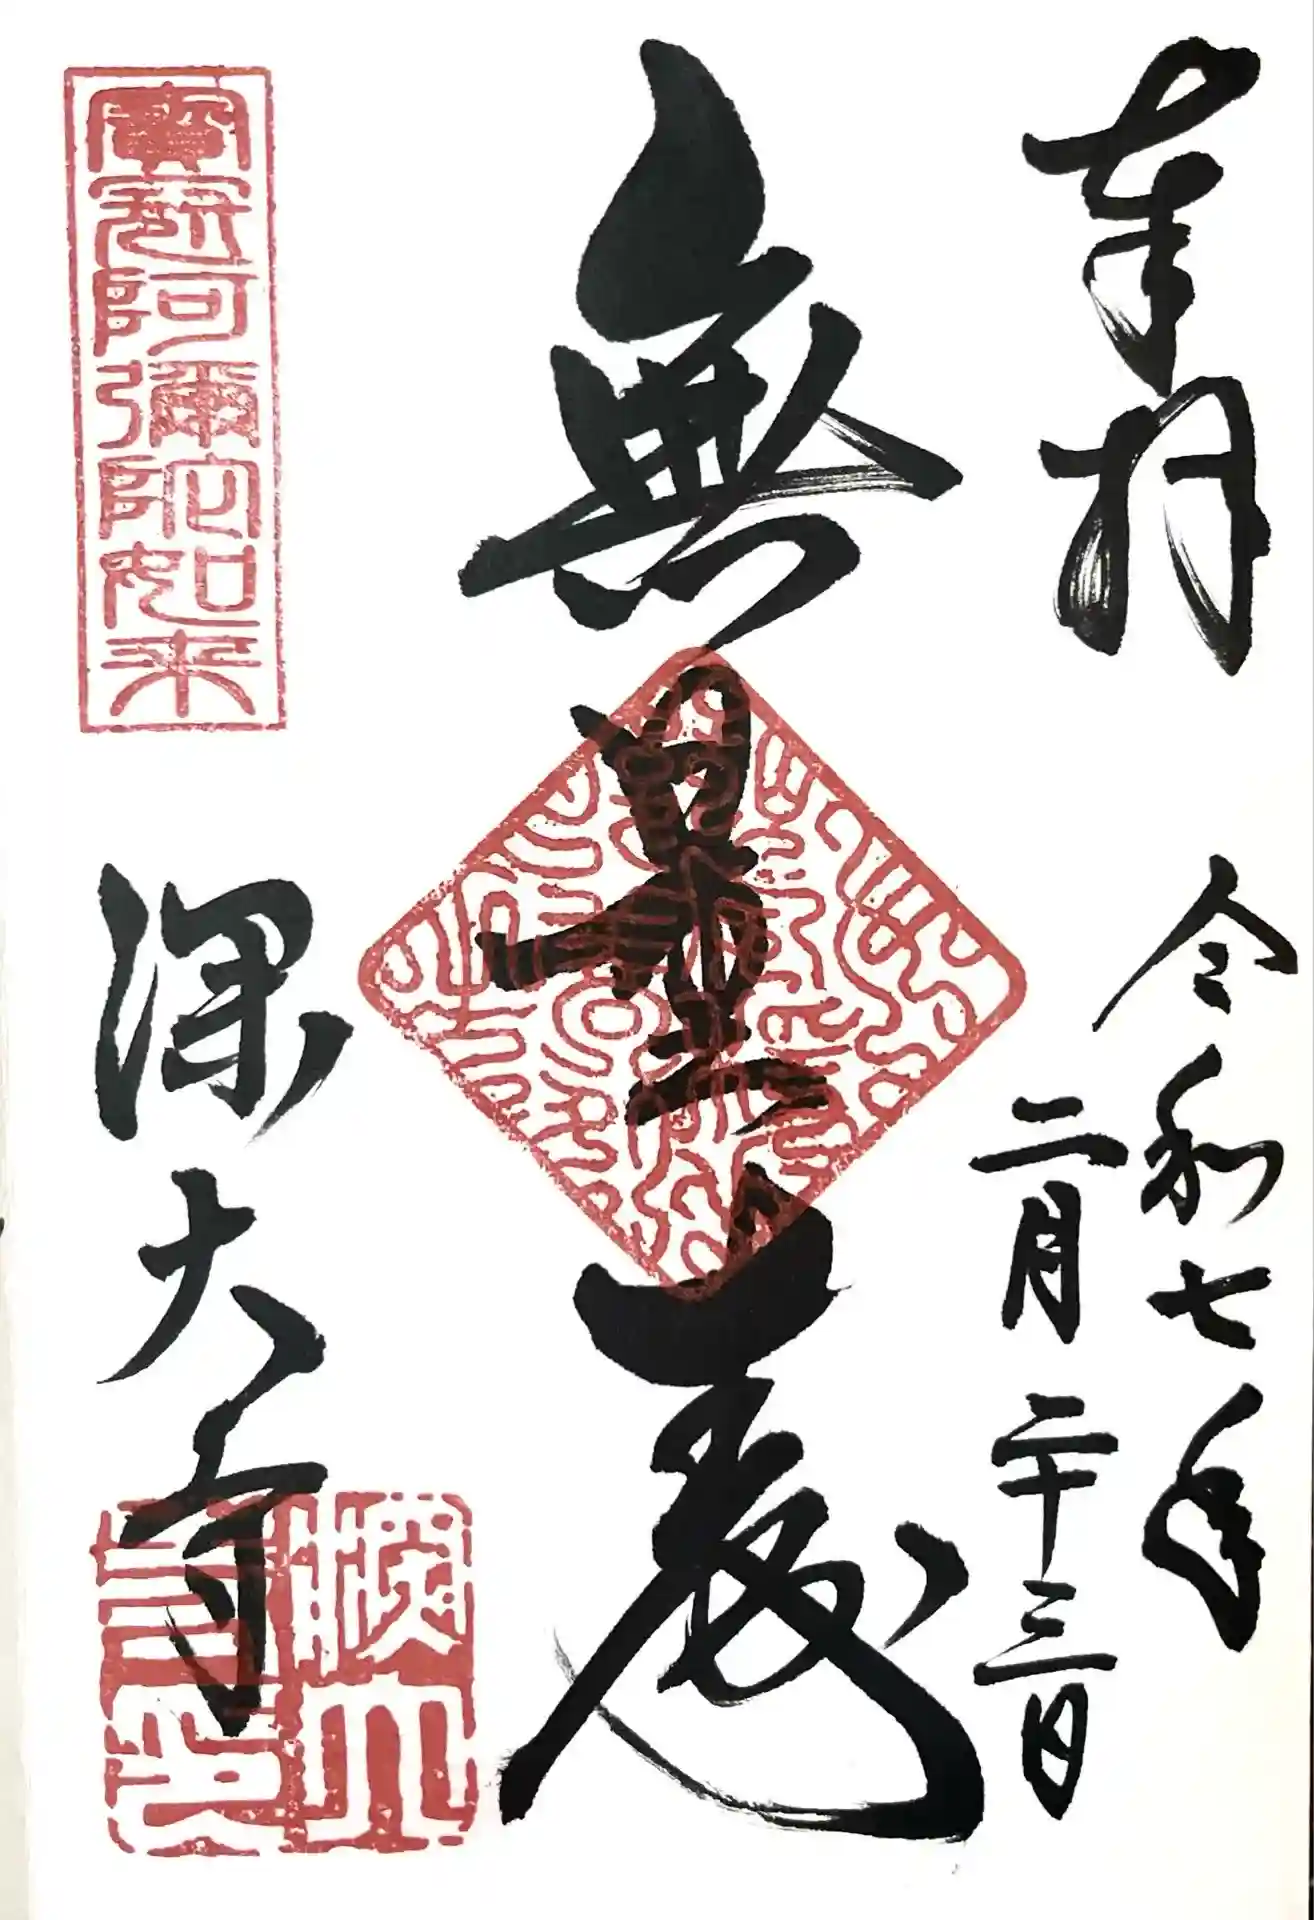 奉拝
令和七年
二月二十三日
無量壽
寳冠阿彌陀如来
深大寺
深大寺印